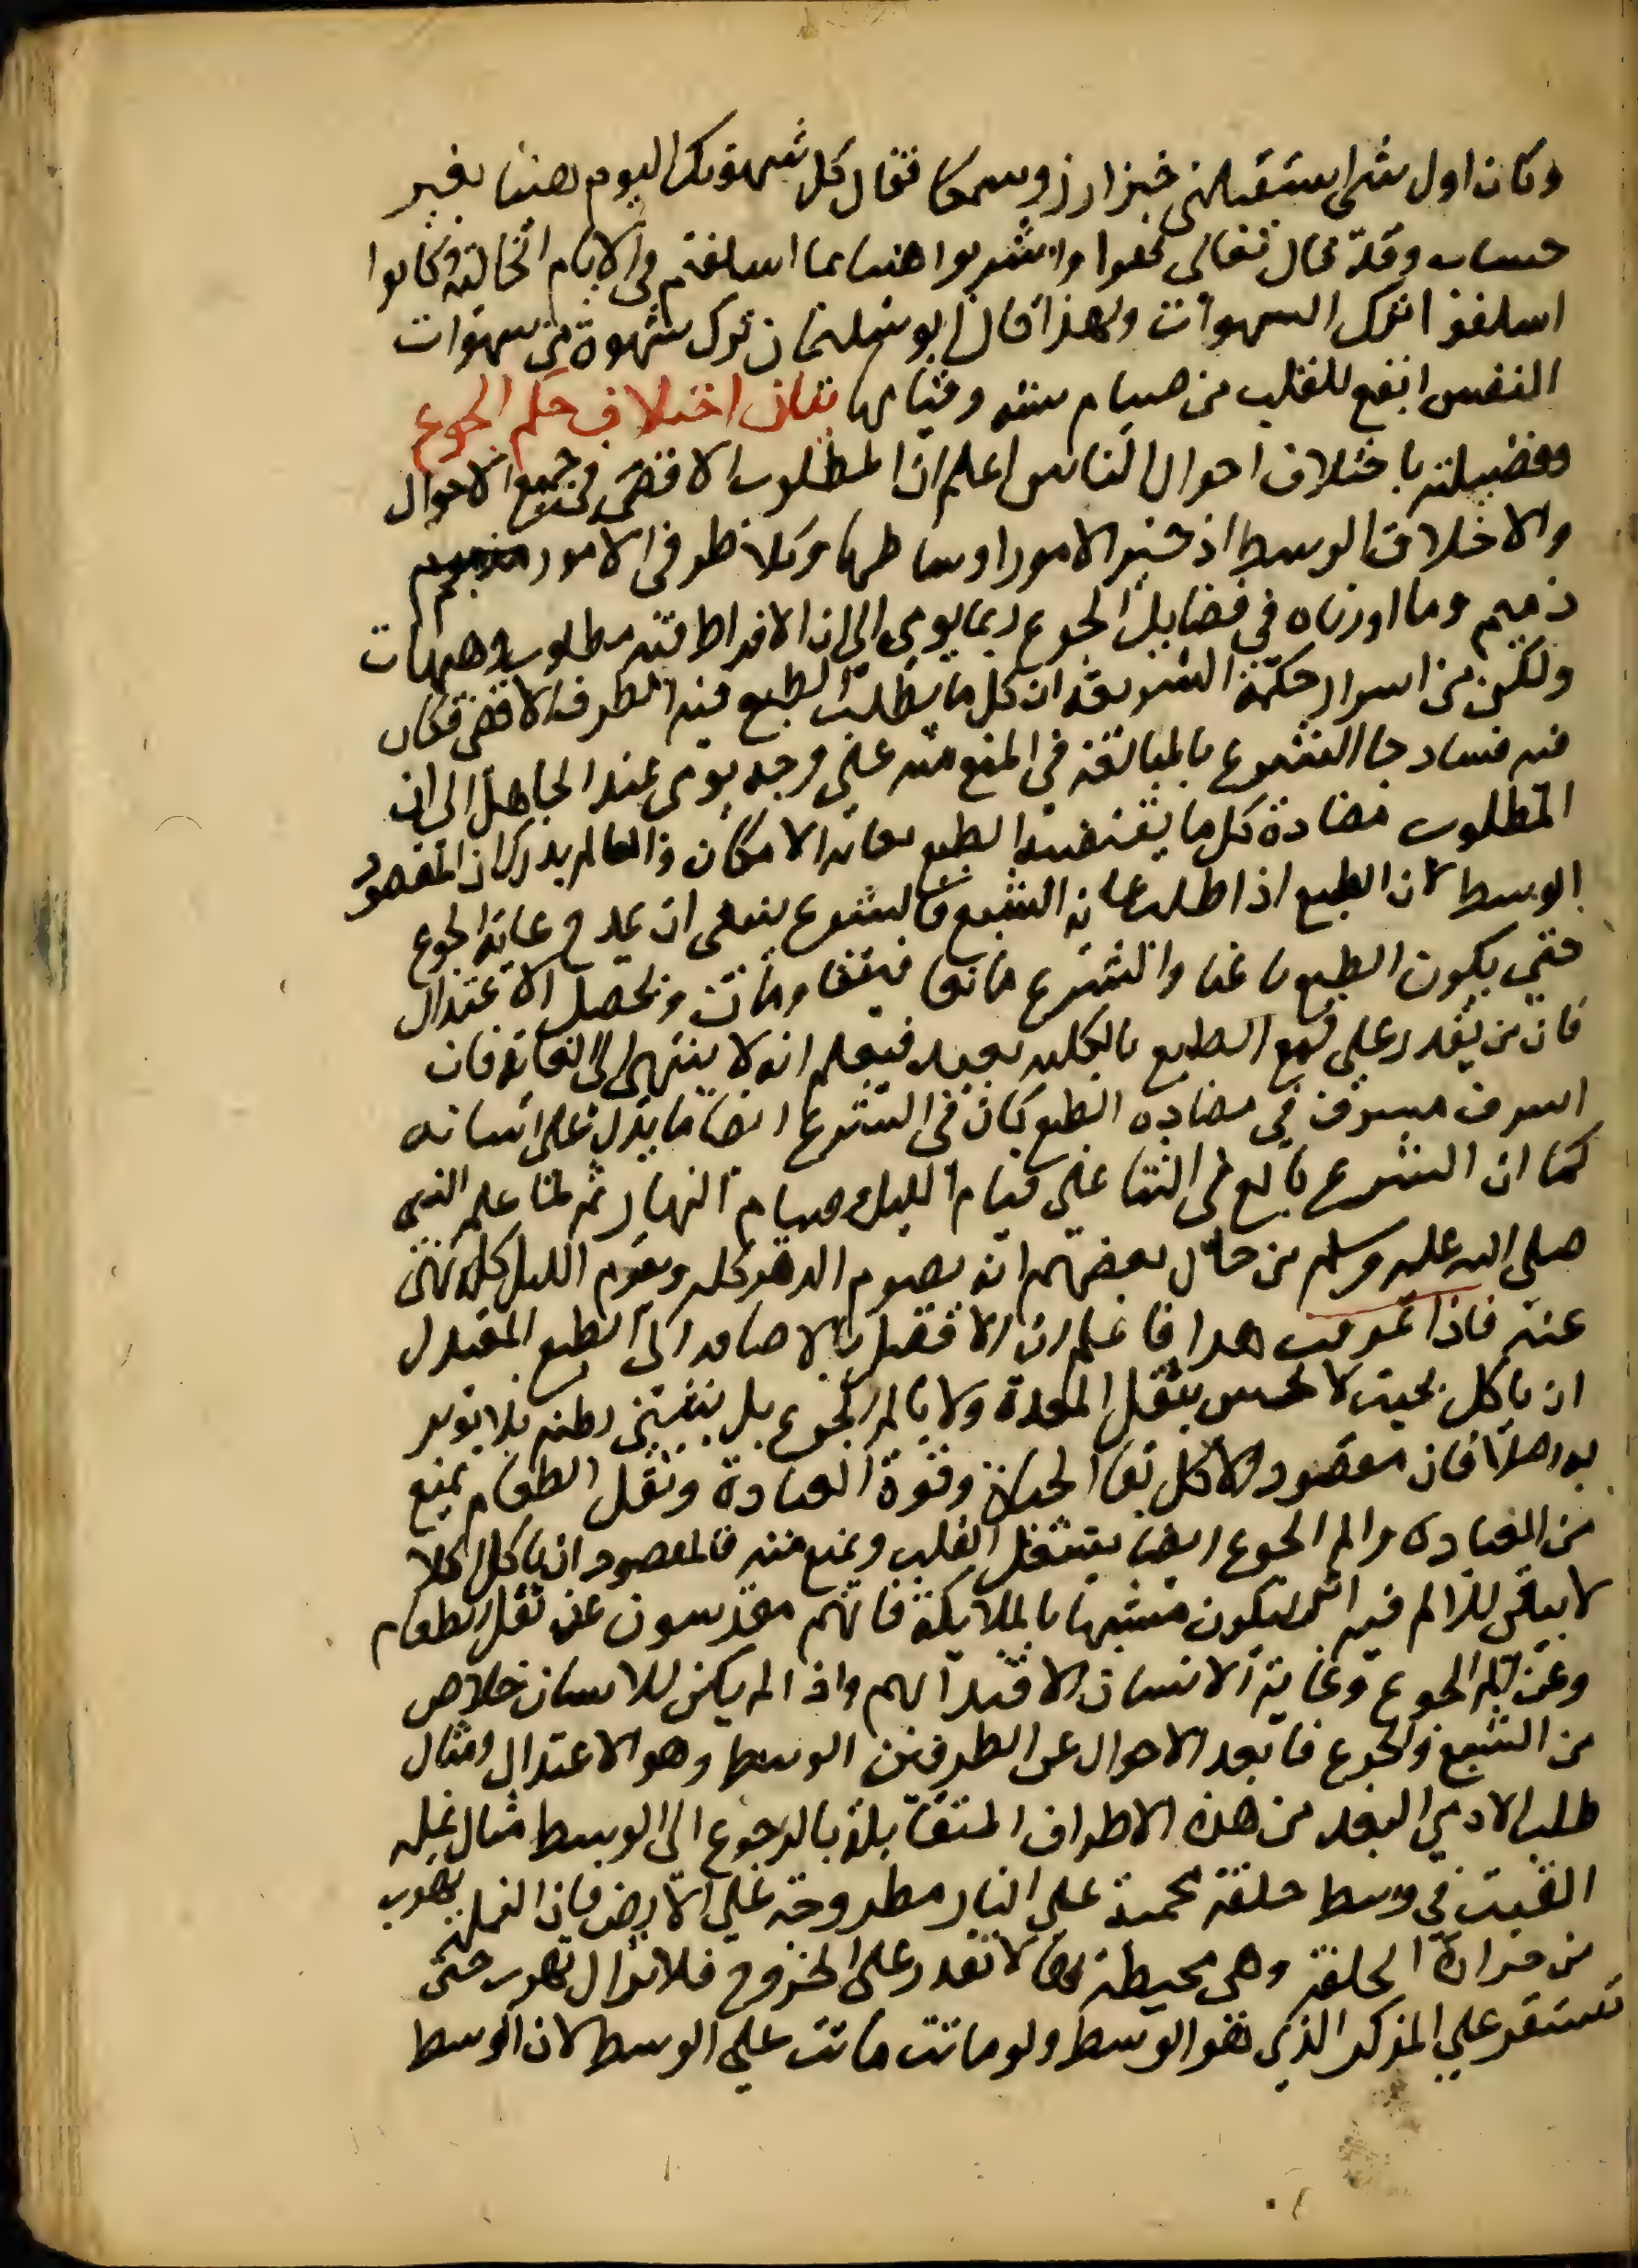 وكان اول شي استقبلني خبز ارز وسمكا فقال كل شهوتك اليوم هنيا بغير
حساب وقد قال تعالى كلوا واشربوا هنيا بما اسلفتم في الايام الخالية وكانوا
اسلفوا ترك الشهوات ولهذا قال ابو سليمان ترك شهوة من شهوات
النفس انفع للقلب من صيام سنه وقيامها بيان اختلاف حكم الجوع
وفضيلته باختلاف احوال الناس اعلم ان المطلوب الاقصى في جميع الاحوال
والاخلاق الوسط اذ خير الامور اوساطها وكلا طرفى الامور
ذميم وما اوردناه في فضايل الجوع ربما يومى الى ان الافراط فيه مطلوب وهيهات
ولكن من اسرار حكمة الشريعة ان كل ما يطلب الطبع فيه الطرف الاقصى فكان
فيه فساد جا الشرع بالمبالغة في المنع منه على وجه يومى عند الجاهل الى ان
المطلوب مضادة كل ما يقتضيه الطبع بغاية الامكان والعالم يدرك ان المقصود
الوسط لان الطبع اذا طلب غاية الشبع فالشرع ينبغى ان يمدح غاية الجوع
حتى يكون الطبع باعثا والشرع مانعا فيتقاومان ويحصل الاعتدال
فان من يقدر على قمع الطبع بالكليه بعيد فيعلم انه لا ينتهى الى الغاية فان
اسرف مسرف في مضاده الطبع كان في الشرع ايضا ما يدل على اساته
كما ان الشرع بالغ في الثنا على قيام الليل وصيام النهار ثم لما علم النبى
صلى الله عليه وسلم من حال بعضهم انه يصوم الدهر كله ويقوم الليل كله نهى
عنه فاذا عرفت هذا فاعلم ان الافضل بالاضافه الى الطبع المعتدل
ان ياكل بحيث لا يحس بثقل المعدة ولا بالم الجوع بل ينسى بطنه فلا يوثر
به اصلا فان مقصود الاكل بقا الحياة وقوة العبادة وثقل الطعام يمنع
من العباده والم الجوع ايضا يشغل القلب ويمنع منه فالمقصود ان ياكل اكلا
لا يبقى للالم فيه اثر ليكون متشبها بالملايكة فانهم مقدسون عن ثقل الطعام
وعن الم الجوع وغاية الانسان الاقتدا بهم واذا لم يكن للانسان خلاص
من الشبع والجوع فابعد الاحوال عن الطرفين الوسط وهو الاعتدال ومثال
طلب الادمي البعد من هذه الاطراف المتقابلة بالرجوع الى الوسط مثال نمله
القيت في وسط حلقة محمية على النار مطروحة على الارض فان النملة تهرب
من حرارة الحلقة وهى محيطة بها لا تقدر على الخروج فلا تزال تهرب حتى
تستقر على المركز الذي هو الوسط ولو ماتت ماتت على الوسط لان الوسط